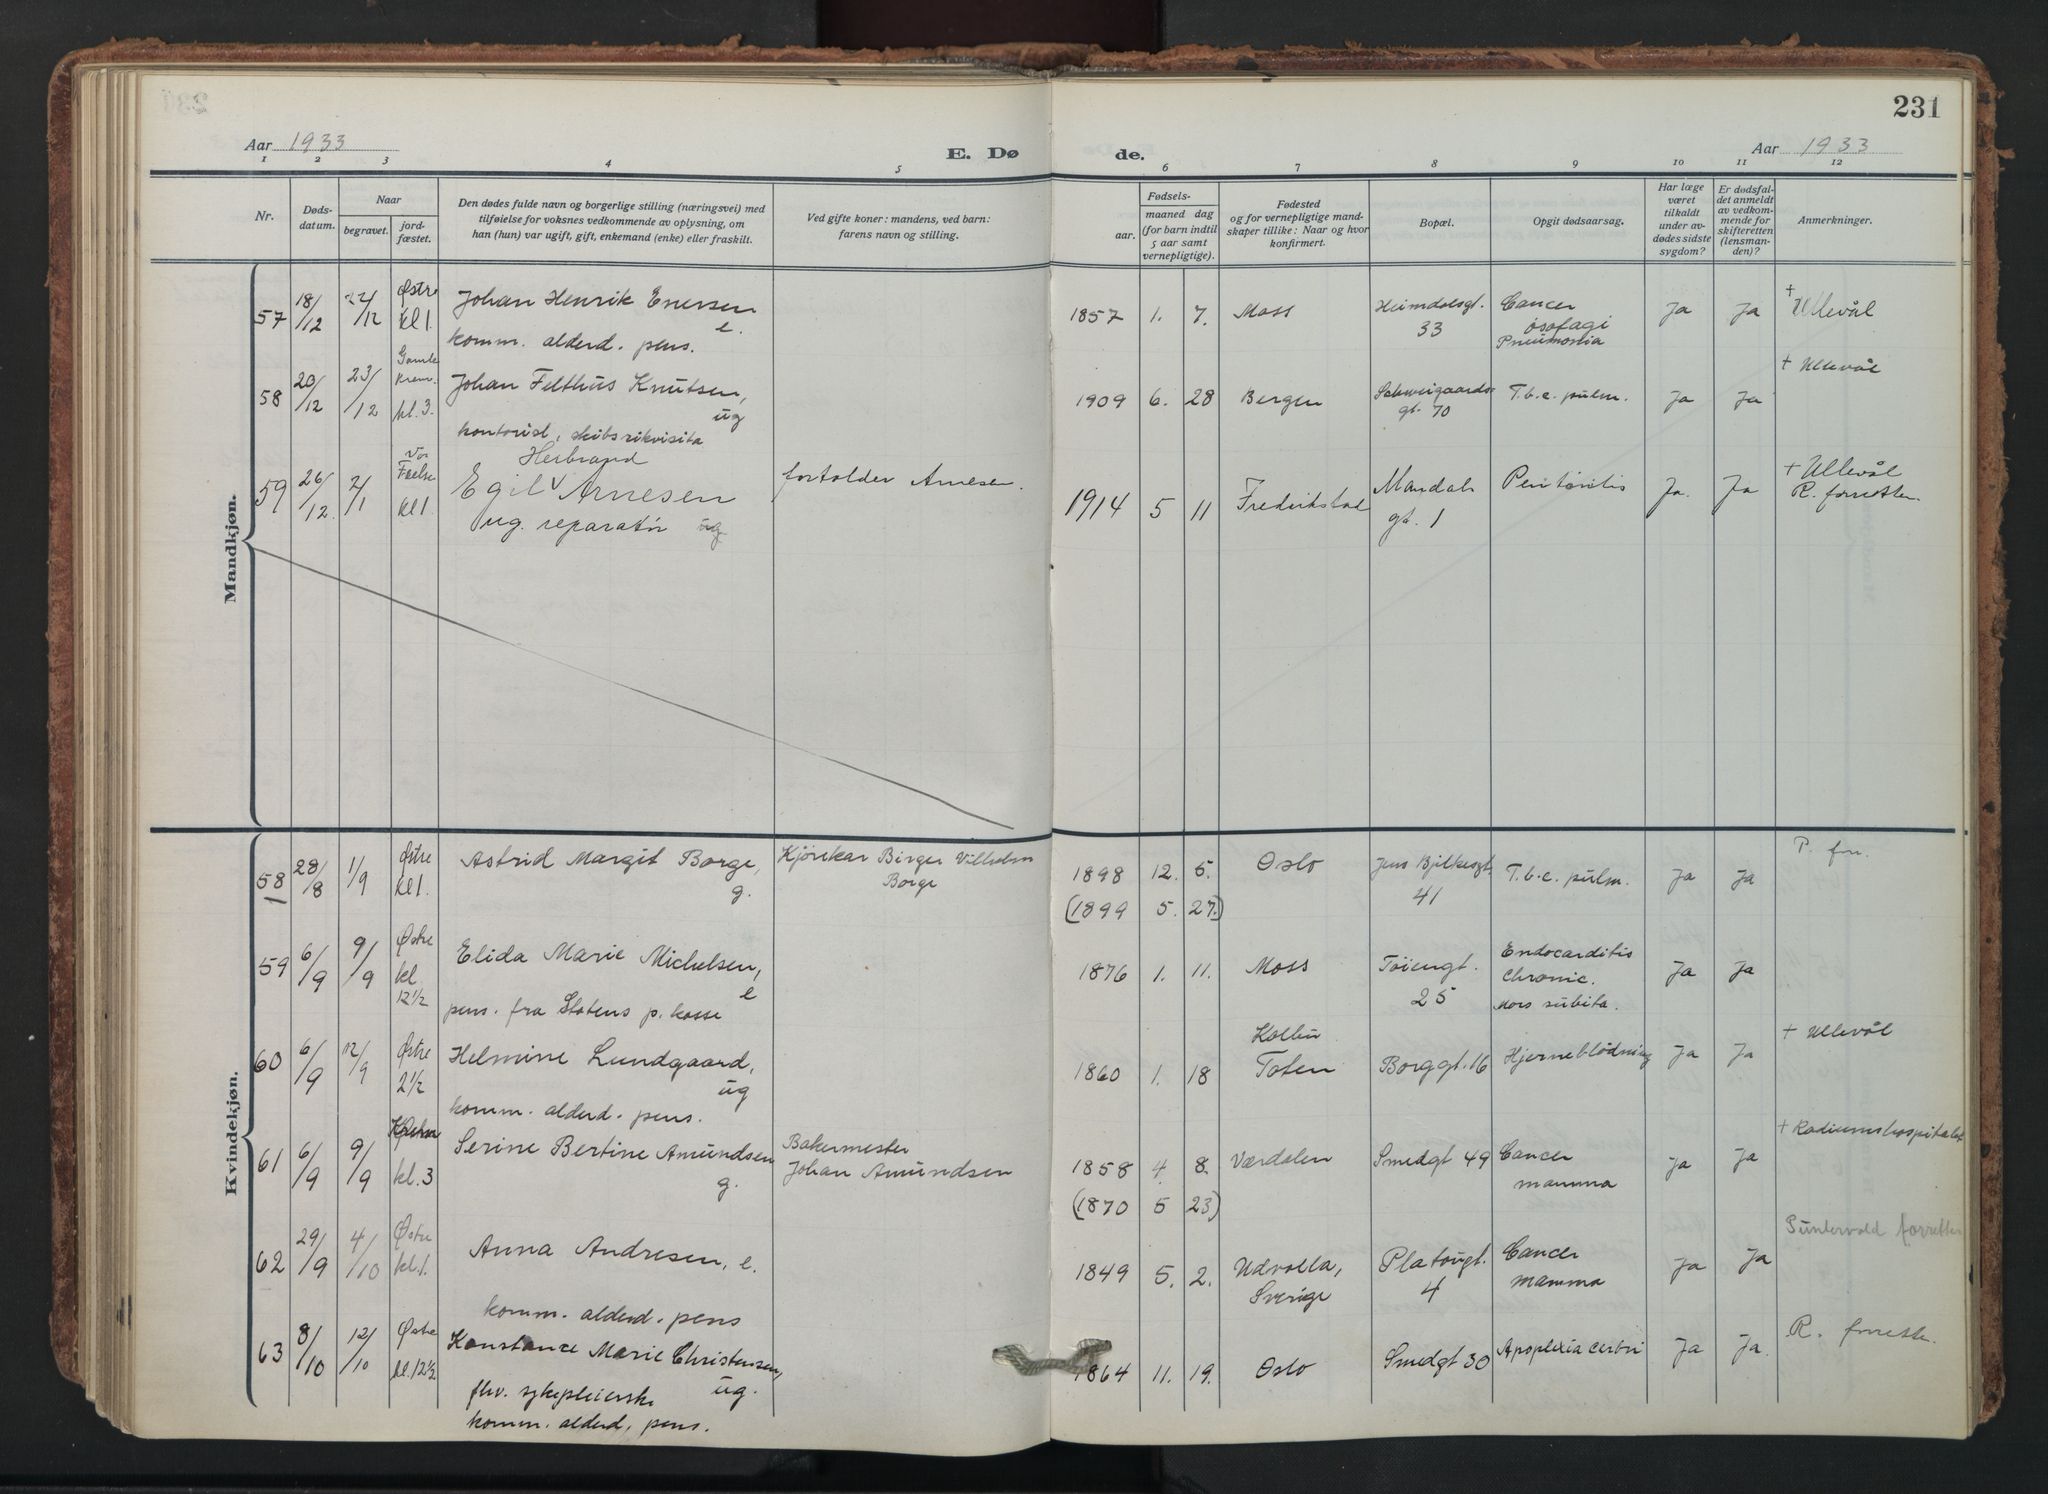 231
Aar 1933
E. Dø
de.
Aar 1933
1 2 3 4 5 6 7 8 9 10 11 12
Nr.
Døds-
datum.
Naar
begravet.
jord-
fæstet.
Den dødes fulde navn og borgerlige stilling (næringsvei) med
tilføielse for voksnes vedkommende av oplysning, om
han (hun) var ugift, gift, enkemand (enke) eller fraskilt.
Ved gifte koner: mandens, ved barn:
farens navn og stilling.
Fødsels-
aar.
maaned dag
(for barn indtil
5 aar samt
vernepligtige).
Fødested
og for vernepligtige mand-
skaper tillike: Naar og hvor
konfirmert.
Bopæl.
Opgit dødsaarsag.
Har læge
været
tilkaldt
under av-
dødes sidste
sygdom?
Er dødsfal-
det anmeldt
av vedkom-
mende for
skifteretten
(lensman-
den)?
Anmerkninger.
Mandkjøn.
57 18/12 22/12 Østre kl 1. Johan Henrik Enersen e. 1857 1. 7. Moss Heimdalsgt. 33 Cancer Ja Ja + Ullevål
komm. alderd. pens. øsofagi
Pneumonia
58 20/12 23/12 Gamle Krem. kl. 3. Johan Felthus Knutsen, ug 1909 6. 28 Bergen Schweigaards- gt. 70 T.b.c. pulm. Ja Ja + Ullevål
kontorist, skibsrikvisita
59 26/12. 2/1 Vor Frelse kl 1. Egil Herbrand Arnesen forholder Arnesen. 1914 5 11 Fredrikstad Mandals gt. 1 Peritonitis Ja. Ja + Ullevål
R. forretter.
ug. reparatør ug
Kvindekjøn.
58 28/8 1/9 Østre kl 1. Astrid Margit Borge, g. Kjørekar Birger Vilhelm Borge 1898 12. 5. Oslo Jens Bjelkesgt 41 T.b.c. pulm. Ja Ja P. forr.
(1899 5. 27.)
59 6/9 9/9 Østre kl. 12 1/2 Elida Marie Michelsen, e 1876 1. 11. Moss Tøiengt. 25 Endocarditis Ja Ja
pens. fra Statens p. kasse chronic.
mors subita.
60 6/9 12/9 Østre 2 1/2 Helmine Lundgaard, ug 1860 1. 18 Kolbu Toten Borggt. 16 Hjerneblødning Ja Ja + Ullevål
komm. alderd. pens.
61 6/9 9/9 kl. 3 Serine Bertine Amundsen g. Bakermester Johan Amundsen 1858 4. 8. Værdalen Smedgt 49 Cancer mamma Ja Ja + Radiumshospitalet
(1870 5 23)
62 29/9 4/10 Østre kl. 1. Anna Andresen, e. 1849 5. 2. Udvalla, Sverige Platougt. 4 Cancer mamma Ja Ja Suntervold forretter
komm. alderd. pens
63 8/10 12/10 Østre kl. 12 1/2 Konstance Marie Christensen, ug. 1864 11. 19. Oslo Smedgt 30 Apoplexia cerbri Ja Ja. R. forretter.
fhv. sykepleierske
komm. alderd. pens.